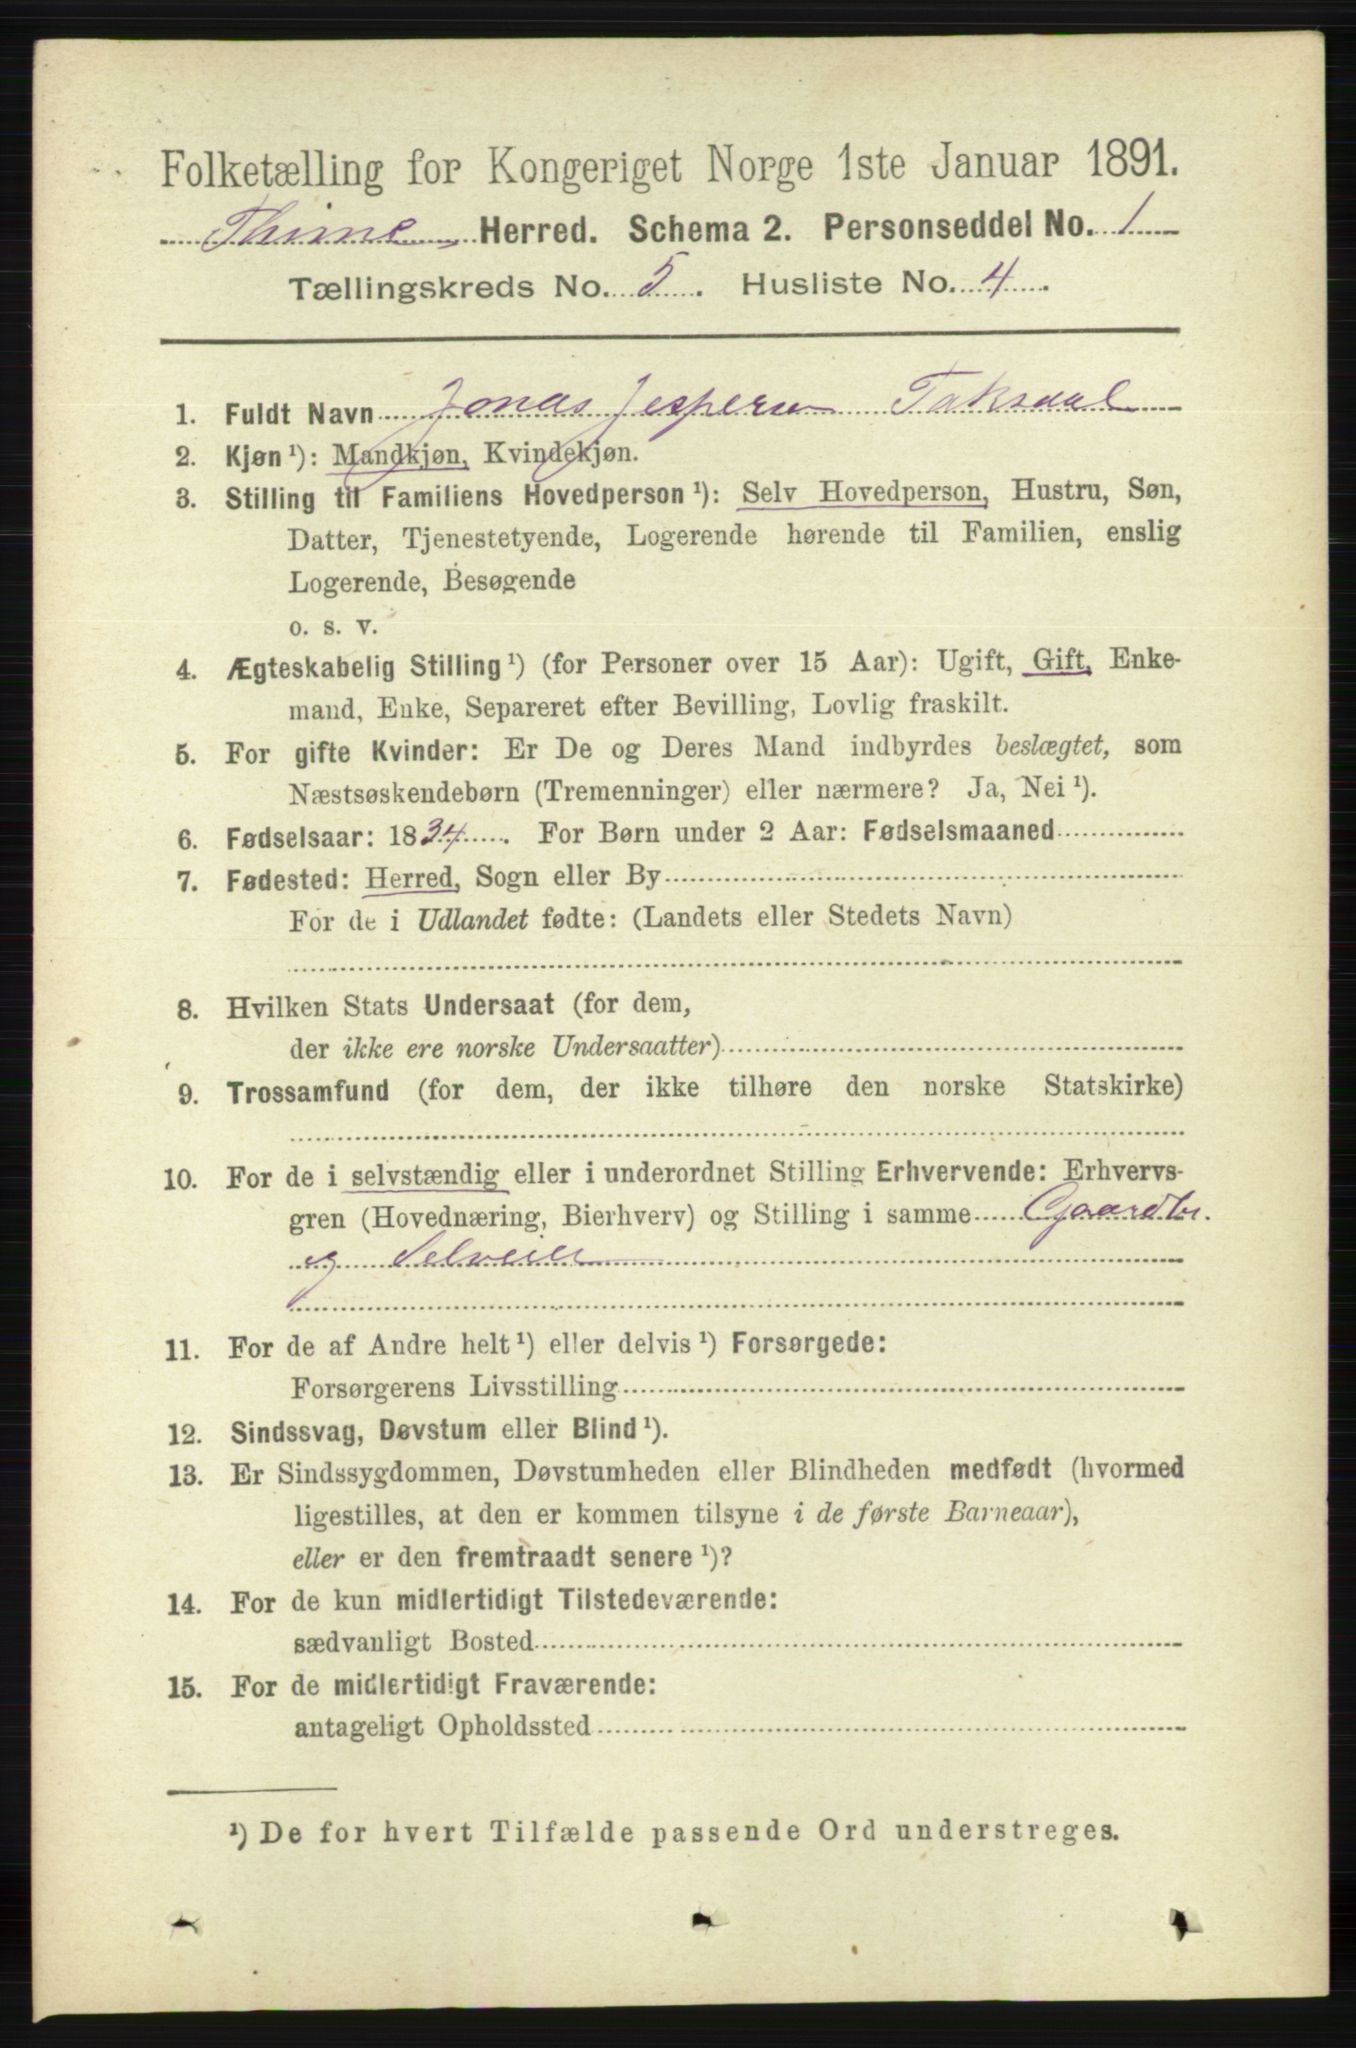 Folketælling for Kongeriget Norge 1ste Januar 1891.
Thime Herred. Schema 2. Personseddel No. 1
Tællingskreds No. 5. Husliste No. 4.
1. Fuldt Navn Jonas Jespersen Taksdal
2. Kjøn ¹): Mandkjøn, Kvindekjøn.
3. Stilling til Familiens Hovedperson ¹): Selv Hovedperson, Hustru, Søn,
Datter, Tjenestetyende, Logerende hørende til Familien, enslig
Logerende, Besøgende
o. s. v.
4. Ægteskabelig Stilling ¹) (for Personer over 15 Aar): Ugift, Gift, Enke-
mand, Enke, Separeret efter Bevilling, Lovlig fraskilt.
5. For gifte Kvinder: Er De og Deres Mand indbyrdes beslægtet, som
Næstsøskendebørn (Tremenninger) eller nærmere? Ja, Nei ¹).
6. Fødselsaar: 1834. For Børn under 2 Aar: Fødselsmaaned
7. Fødested: Herred, Sogn eller By
For de i Udlandet fødte: (Landets eller Stedets Navn)
8. Hvilken Stats Undersaat (for dem,
der ikke ere norske Undersaatter)
9. Trossamfund (for dem, der ikke tilhøre den norske Statskirke)
10. For de i selvstændig eller i underordnet Stilling Erhvervende: Erhvervs-
gren (Hovednæring, Bierhverv) og Stilling i samme Gaardbr.
og Selveier
11. For de af Andre helt ¹) eller delvis ¹) Forsørgede:
Forsørgerens Livsstilling
12. Sindssvag, Døvstum eller Blind ¹).
13. Er Sindssygdommen, Døvstumheden eller Blindheden medfødt (hvormed
ligestilles, at den er kommen tilsyne i de første Barneaar),
eller er den fremtraadt senere ¹)?
14. For de kun midlertidigt Tilstedeværende:
sædvanligt Bosted
15. For de midlertidigt Fraværende:
antageligt Opholdssted
¹) De for hvert Tilfælde passende Ord understreges.